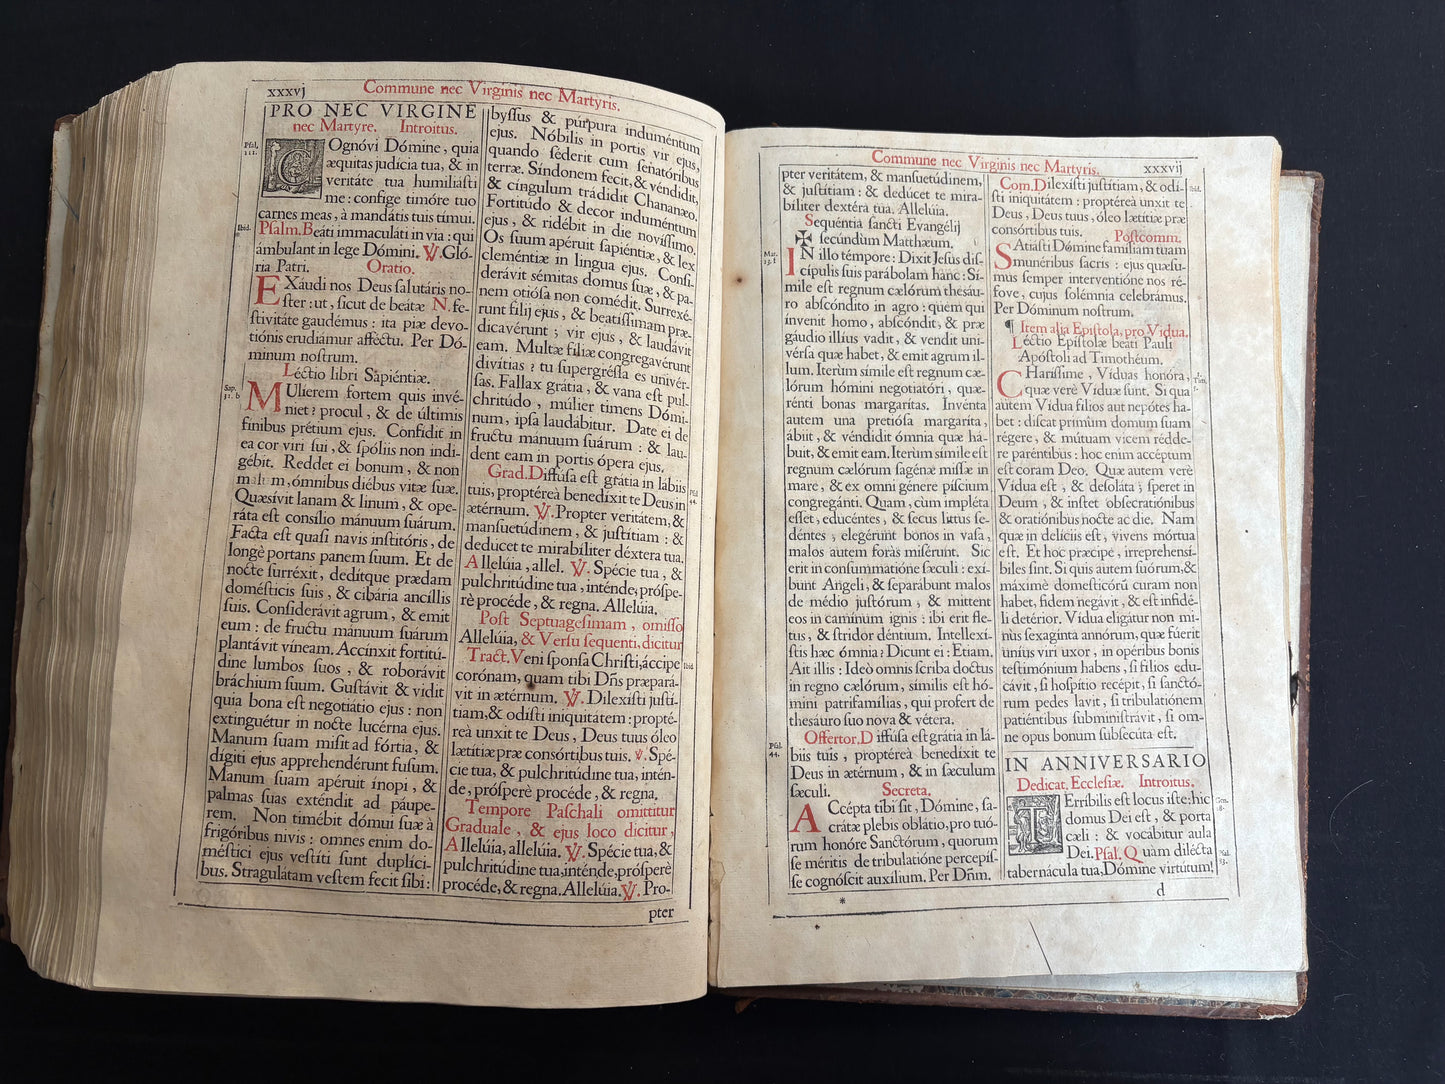 xxxvj
Commune nec Virginis nec Martyris.
PRO NEC VIRGINE
nec Martyre. Introitus.
Psal. 111.
COgnóvi Dómine, quia
æquitas judícia tua, & in
veritáte tua humiliásti
me: confige timóre tuo
carnes meas, à mandátis tuis tímui.
Ibid.
Psalm. Beáti immaculáti in via: qui
ámbulant in lege Dómini. ℣. Gló-
ria Patri. Oratio.
EXáudi nos Deus salutáris no-
ster: ut, sicut de beátæ N. fe-
stivitáte gaudémus: ita piæ devo-
tiónis erudiámur affectu. Per Dó-
minum nostrum.
Léctio libri Sapiéntiæ.
Sap. 31. b
MUlierem fortem quis invé-
niet? procul, & de últimis
finibus prétium ejus. Confidit in
ea cor viri sui, & spóliis non indi-
gébit. Reddet ei bonum, & non
malum, ómnibus diébus vitæ suæ.
Quæsívit lanam & linum, & ope-
ráta est consílio mánuum suárum.
Facta est quasi navis institóris, de
longè portans panem suum. Et de
nocte surréxit, dedítque prædam
domésticis suis, & cibária ancíllis
suis. Considerávit agrum, & emit
eum: de fructu mánuum suárum
plantávit víneam. Accínxit fortitú-
dine lumbos suos, & roborávit
bráchium suum. Gustávit & vidit
quia bona est negotiatio ejus: non
extinguétur in nocte lucérna ejus.
Manum suam misit ad fórtia, &
dígiti ejus apprehendérunt fusum.
Manum suam apéruit ínopi, &
palmas suas exténdit ad páupe-
rem. Non timébit dómui suæ à
frigóribus nivis: omnes enim do-
méstici ejus vestíti sunt duplíci-
bus. Stragulatam vestem fecit sibi:
byssus & púrpura indumentum
ejus. Nóbilis in portis vir ejus,
quando séderit cum senatóribus
terræ. Síndonem fecit, & véndidit,
& cíngulum trádidit Chananæo.
Fortitúdo & decor induméntum
ejus, & ridébit in die novíssimo.
Os suum apéruit sapiéntiæ, & lex
cleméntiæ in lingua ejus. Consi-
derávit sémitas domus suæ, & pa-
nem otiósa non comédit. Surrexé-
runt filij ejus, & beatíssimam præ-
dicavérunt; vir ejus, & laudávit
eam. Multæ fíliæ congregavérunt
divítias? tu supergréssa es univér-
sas. Fallax grátia, & vana est pul-
chritúdo, múlier timens Dómi-
num, ipsa laudábitur. Date ei de
fructu mánuum suárum: & lau-
dent eam in portis ópera ejus.
Grad. Diffúsa est grátia in lábiis
Psal. 44.
tuis, proptéreà benedíxit te Deus in
ætérnum. ℣. Propter veritátem, &
mansuetúdinem, & justítiam: &
dedúcet te mirabíliter déxtera tua.
Allelúia, allel. ℣. Spécie tua, &
pulchritúdine tua, inténde, próspe-
rè procéde, & regna. Allelúia.
Post Septuagesimam, omisso
Allelúia, & Versu sequenti, dicitur
Tract. Veni sponsa Christi, áccipe
Ibid.
corónam, quam tibi Dñs præpara-
vit in ætérnum. ℣. Dilexísti justí-
tiam, & odísti iniquitátem: propté-
reà unxit te Deus, Deus tuus óleo
lætítiæ præ consórtibus tuis. ℣. Spé-
cie tua, & pulchritúdine tua, intén-
de, próspere procéde, & regna.
Tempore Paschali omittitur
Graduale, & ejus loco dicitur,
Allelúia, allelúia. ℣. Spécie tua, &
pulchritúdine tua, inténde, próspere
procéde, & regna. Allelúia. ℣. Pro-
pter
Commune nec Virginis nec Martyris.
xxxvij
pter veritátem, & mansuetúdinem,
& justítiam: & dedúcet te mira-
bíliter déxtera tua. Allelúia.
Sequéntia sancti Evangélij
✠ secúndùm Matthæum.
Mat. 13. f
IN illo témpore: Dixit Jesus dis-
cípulis suis parábolam hanc: Sí-
mile est regnum cælórum thesáu-
ro abscóndito in agro: quem qui
ínvenit homo, abscóndit, & præ
gáudio illius vadit, & vendit uni-
vérsa quæ habet, & emit agrum il-
lum. Iterùm símile est regnum cæ-
lórum hómini negotiatóri, quæ-
rénti bonas margarítas. Invénta
autem una pretiósa margaríta,
ábiit, & véndidit ómnia quæ há-
buit, & emit eam. Iterùm símile est
regnum cælórum sagénæ missæ in
mare, & ex omni génere píscium
congregánti. Quam, cùm impléta
esset, educéntes, & secus littus se-
déntes, elegérunt bonos in vasa,
malos autem foràs misérunt. Sic
erit in consummatióne sæculi: exí-
bunt Angeli, & separábunt malos
de médio justórum, & mittent
eos in camínum ignis: ibi erit fle-
tus, & stridor déntium. Intellexí-
stis hæc ómnia? Dicunt ei: Etiam.
Ait illis: Ideò omnis scriba doctus
in regno cælórum, símilis est hó-
mini patrifamílias, qui profert de
thesáuro suo nova & vétera.
Psal. 44.
Offertor. Diffúsa est grátia in lá-
biis tuis, proptéreà benedíxit te
Deus in ætérnum, & in sæculum
sæculi. Secreta.
ACcépta tibi sit, Dómine, sa-
crátæ plebis oblátio, pro tuó-
rum honóre Sanctórum, quorum
se méritis de tribulatióne percepis-
se cognóscit auxílium. Per Dñm.
Com. Dilexísti justítiam, & odí-
Ibid.
sti iniquitátem: proptéreà unxit te
Deus, Deus tuus, óleo lætítiæ præ
consórtibus tuis. Postcomm.
SAtiásti Dómine famíliam tuam
munéribus sacris: ejus quæsu-
mus semper interventióne nos ré-
fove, cujus solémnia celebrámus.
Per Dóminum nostrum.
¶ Item alia Epistola, pro Vidua.
Léctio Epístolæ beáti Pauli
Apóstoli ad Timotheum.
1. Tim. 5.
CHaríssime, Víduas honóra,
quæ verè Víduæ sunt. Si qua
autem Vidua fílios aut nepótes ha-
bet: discat primùm domum suam
régere, & mútuam vicem rédde-
re paréntibus: hoc enim accéptum
est coram Deo. Quæ autem verè
Vídua est, & desoláta; speret in
Deum, & instet obsecratiónibus
& oratiónibus nocte ac die. Nam
quæ in delíciis est, vivens mórtua
est. Et hoc præcipe, irreprehensí-
biles sint. Si quis autem suórum, &
máximè domesticórũ curam non
habet, fidem negávit, & est infidé-
li detérior. Vídua eligátur non mi-
nùs sexagínta annórum, quæ fúerit
uníus viri uxor, in opéribus bonis
testimónium habens, si fílios edu-
cávit, si hospítio recépit, si sanctó-
rum pedes lavit, si tribulatiónem
patiéntibus subministrávit, si om-
ne opus bonum subsecúta est.
IN ANNIVERSARIO
Dedicat. Ecclesiæ. Introitus.
Gen. 28.
TErríbilis est locus iste: hic
domus Dei est, & porta
cæli: & vocábitur aula
Dei. Psal. Quàm dilécta
Psal. 83.
tabernácula tua, Dómine virtútum!
d